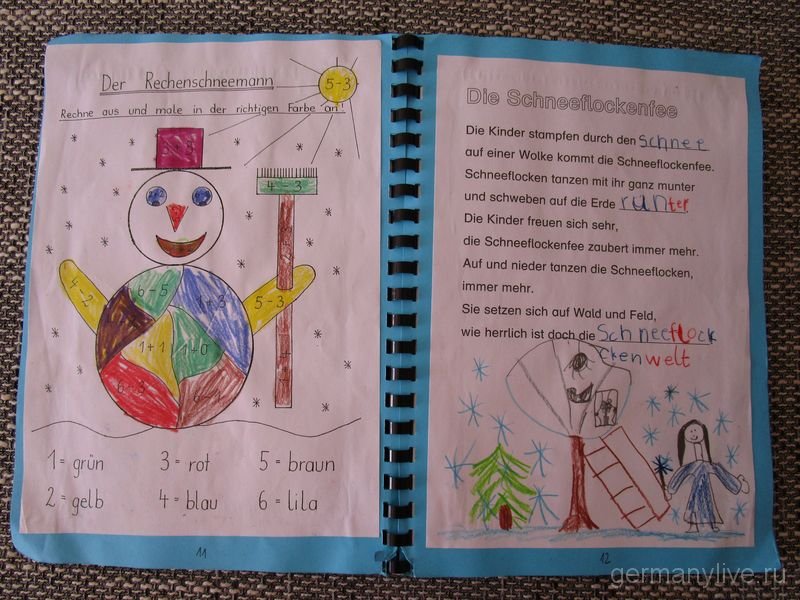 Der Rechenschneemann
5-3
Rechne aus und male in der richtigen Farbe an!
4-3
4-2
6-5
1+3
5-3
1+1
1+0
6-3
6-1
1 = grün 3 = rot 5 = braun
2 = gelb 4 = blau 6 = lila
11
Die Schneeflockenfee
Die Kinder stampfen durch den Schnee
auf einer Wolke kommt die Schneeflockenfee.
Schneeflocken tanzen mit ihr ganz munter
und schweben auf die Erde runter.
Die Kinder freuen sich sehr,
die Schneeflockenfee zaubert immer mehr.
Auf und nieder tanzen die Schneeflocken,
immer mehr.
Sie setzen sich auf Wald und Feld,
wie herrlich ist doch die Schneeflock
ckenwelt
12
germanylive.ru